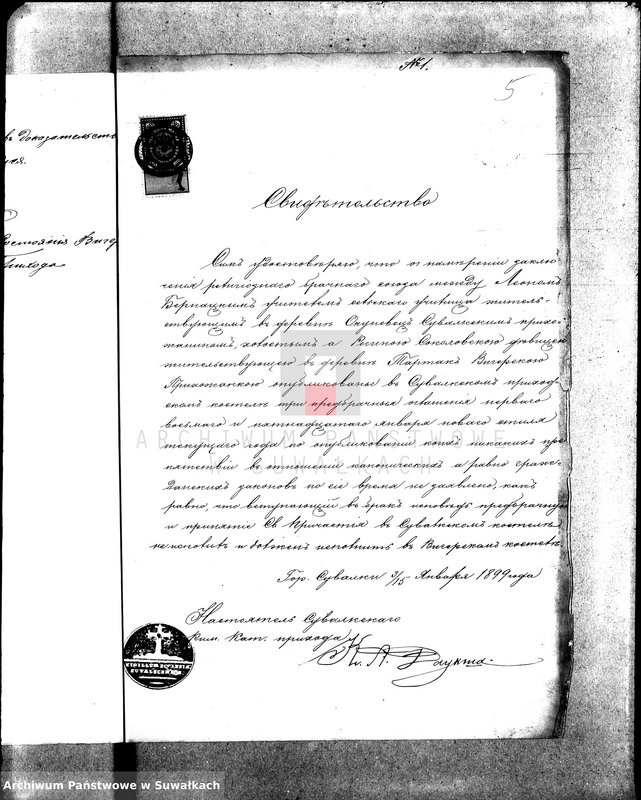 № 1.
5
въ Доказательст
Свидѣтельство
Симъ удостовѣряю, что о намѣреніи заклю-
ченія религіознаго брачнаго союза между Леономъ
Бернацкимъ учителемъ сельскаго училища житель-
ствующимъ въ деревнѣ Окуневецъ Сувалкскимъ прихо-
жаниномъ, холостымъ а Региною Соколовскою дѣвицею
жительствующею въ деревнѣ Тартакъ Вигерскою
Прихожанкою опубликованы въ Сувалкскомъ приход-
скомъ костелѣ три предбрачныя оглашенія перваго
восьмаго и пятнадцатаго января новаго стиля
текущаго года по опубликованіи коихъ никакихъ пре-
пятствій въ отношеніи каноническихъ а равно граж-
данскихъ законовъ по сіе время не заявлено, какъ
равно, что вступающій въ бракъ исповѣдь предбрачную
и принятіе Св. Причастія въ Сувалкскомъ костелѣ
не исполнилъ и долженъ исполнить въ Вигерскомъ костелѣ
Гор. Сувалки 3/15 Января 1899 года
Настоятель Сувалкскаго
Рим. Кат. прихода
Кс. А.
SIGILLUM
ARCHIWUM PAŃSTWOWE
W SUWAŁKACH
Archiwum Państwowe w Suwałkach